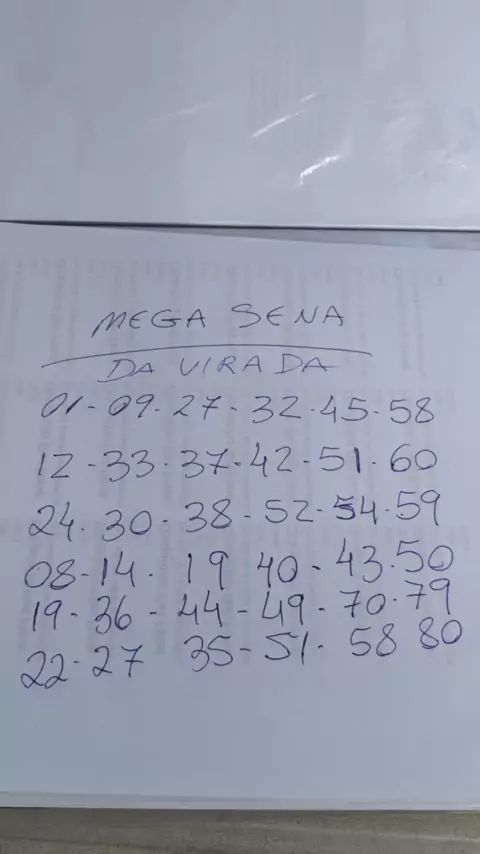 MEGA SENA
DA VIRADA
01-09-27-32-45-58
12-33-37-42-51-60
24-30-38-52-54-59
08-14-19 40-43-50
19-36-44-49-70-79
22-27 35-51-58 80